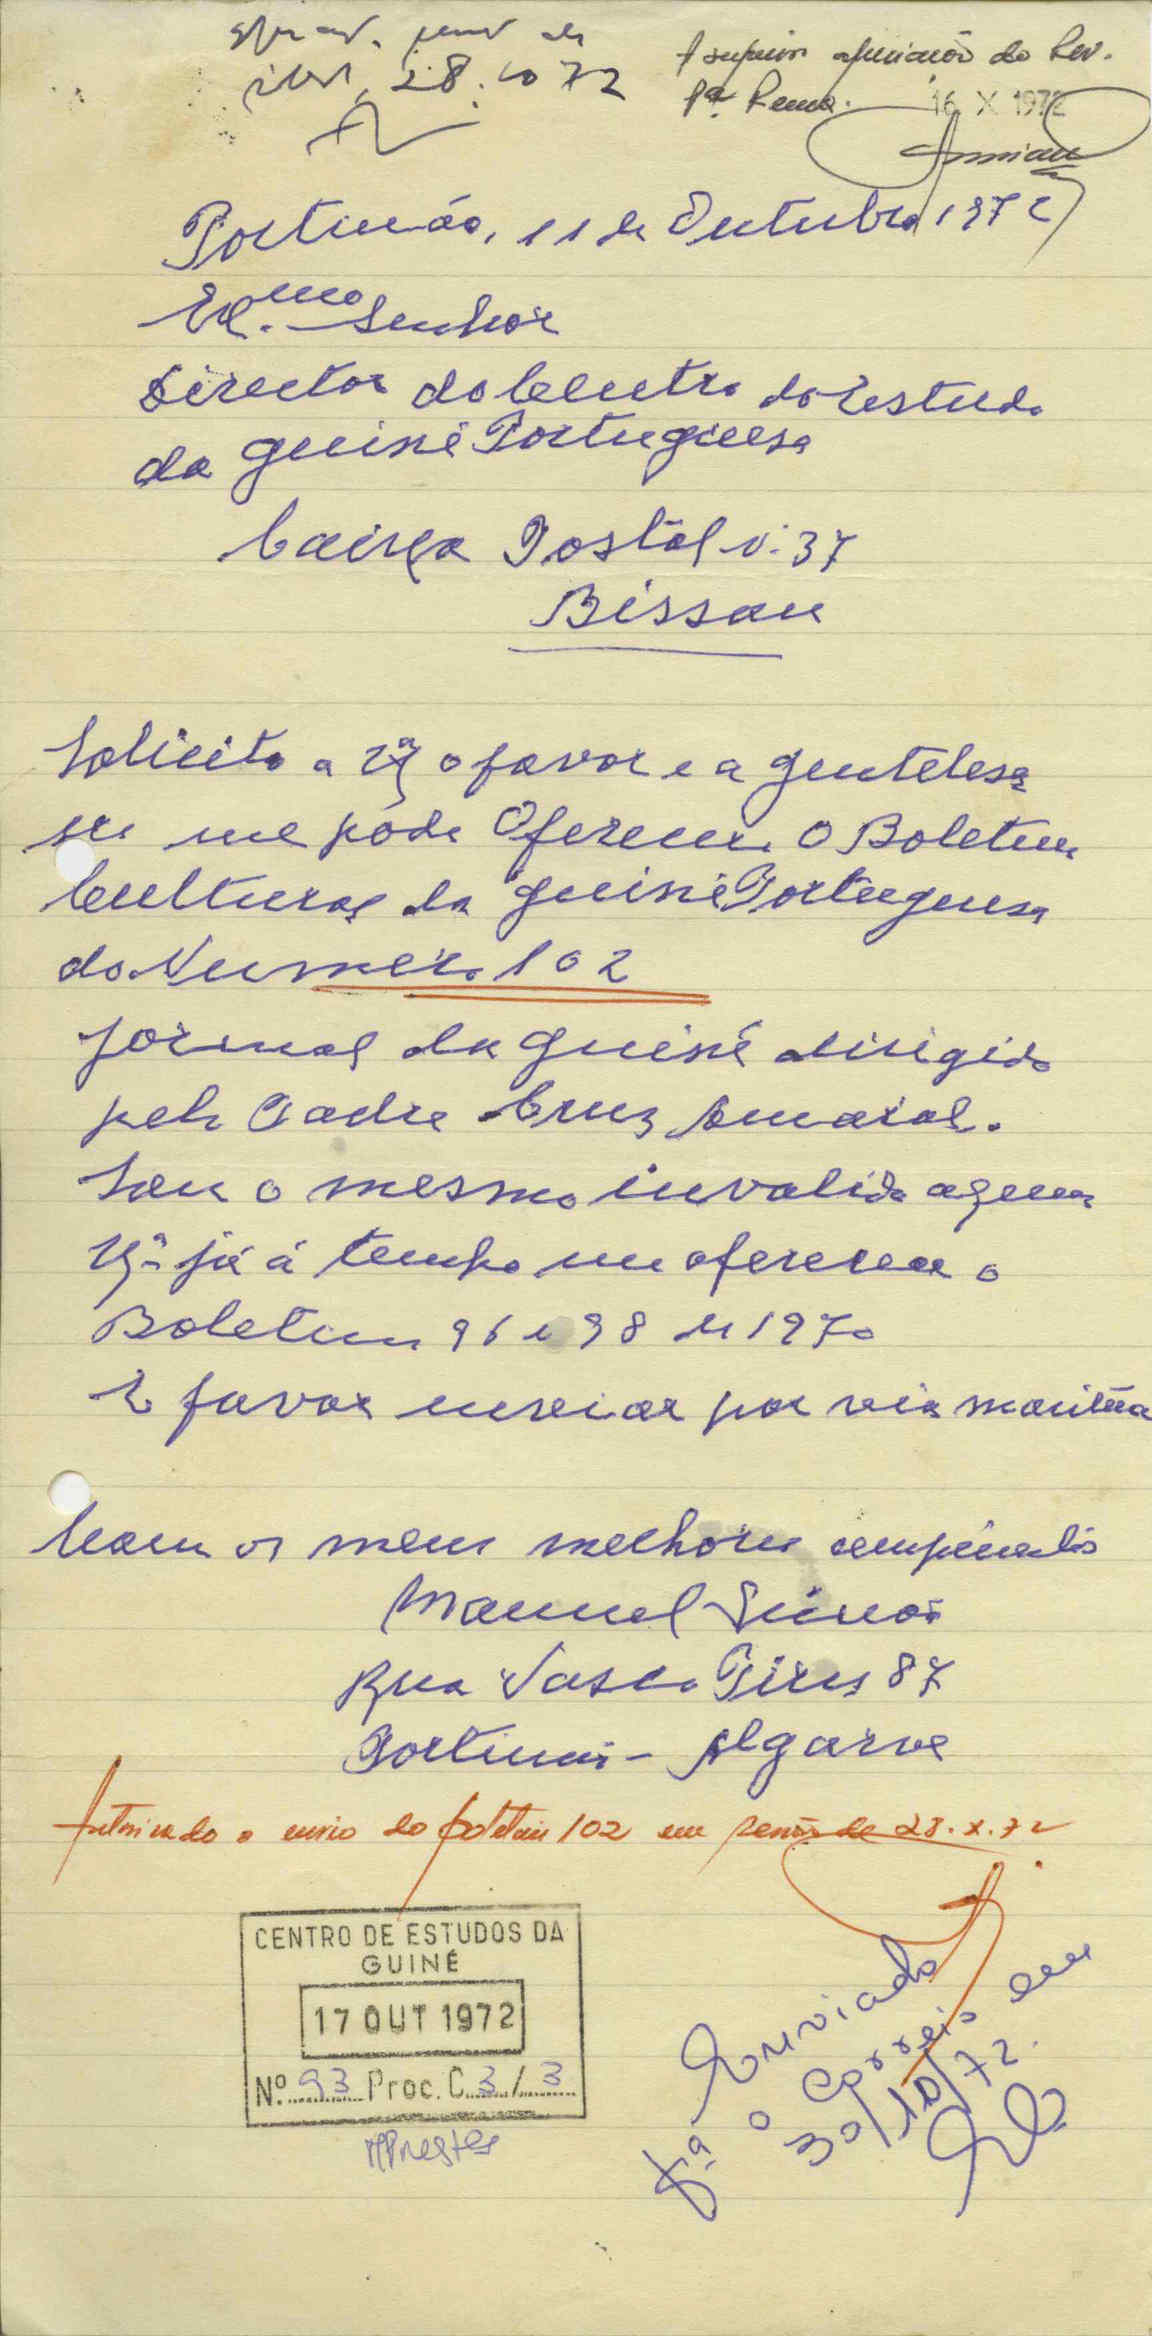 28.10.72
À superior apreciação do Rev.
Pe. Rema.
16 X 1972
Portimão, 11 de Outubro 1972
Ex.mo Senhor
Director do Centro do Estudo
da Guiné Portuguesa
Caixa Postal N. 37
Bissau
Solicito a Vª o favor e a gentelesa
se me póde Oferecer O Boletim
Cultural da Guiné Portuguesa
do Numero 102
jornal da Guiné dirigido
pelo Padre Cruz Amaral.
Sou o mesmo invalido a quem
Vª já á tempo me oferecera o
Boletim 96 e 98 de 1970
É favor enviar por via maritima
Com os meus melhores cumprimentos
Manuel
Rua Vasco Pires 87
Portimão - Algarve
Autorizado o envio do Boletim 102 em de 28.X.72
CENTRO DE ESTUDOS DA
GUINÉ
17 OUT 1972
Nº. 93 Proc. C 3/3
Enviado
pª o Correio em
30/10/72.